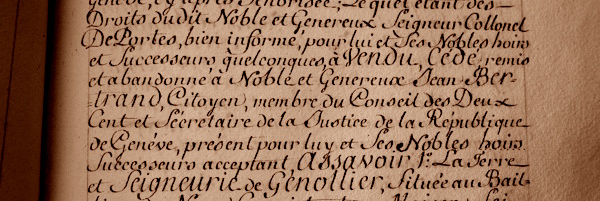 Genève, cy après Authorisée. Lequel étant des
Droits du dit Noble et Genereux Seigneur Collonel
De Portes, bien informé, pour lui et Ses Nobles hoirs
et Successeurs quelconques, à Vendu, Cédé, remis
et abandonné à Noble et Genereux Jean Ber-
trand, Citoyen, membre du Conseil des Deux
Cent et Sécrétaire de la Justice de la République
de Genéve, présent pour luy et Ses Nobles hoirs
Successeurs acceptant, Assavoir 1º. La Terre
et Seigneurie de Génollier, Située au Bail-